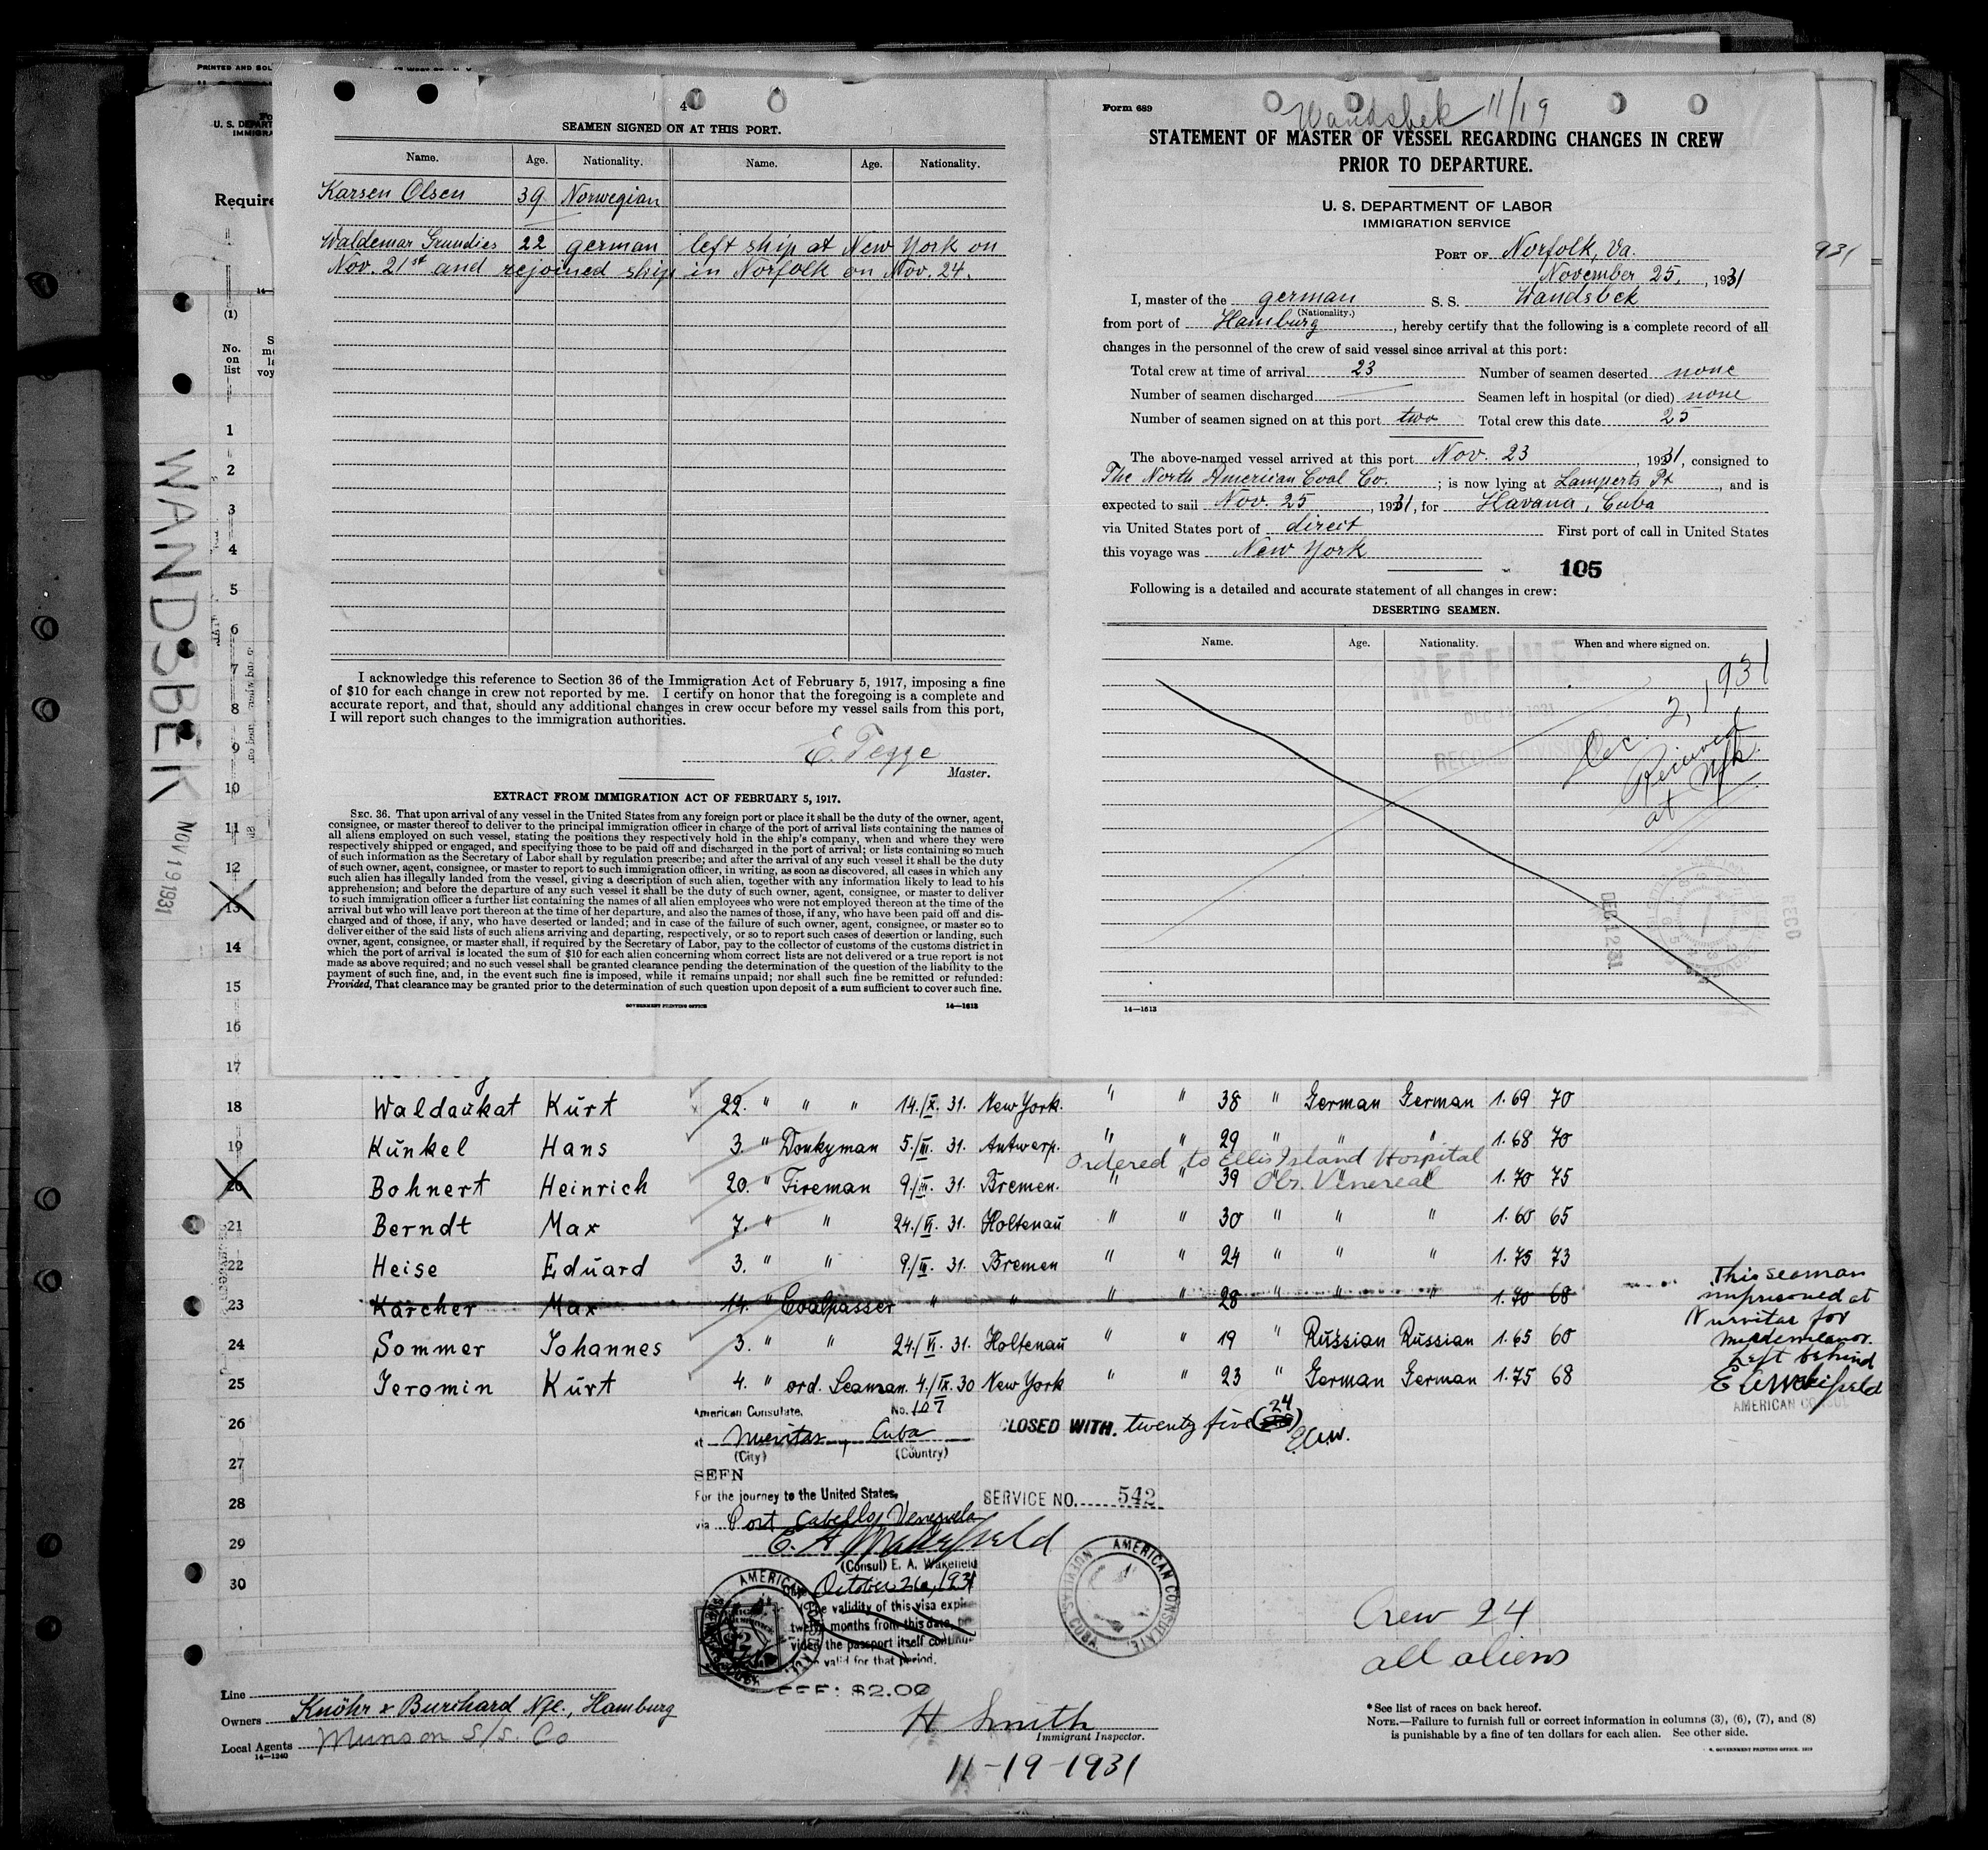 PRINTED AND SOL
U. S. DEPART
IMMIGRA
Require
(1)
No.
on
list
WANDSBEK
NOV 19 1931
4
SEAMEN SIGNED ON AT THIS PORT.
Name. Age. Nationality. Name. Age. Nationality.
Karsen Olsen 39 Norwegian
Waldemar Grundies 22 german left ship at New York on
Nov. 21st and rejoined ship in Norfolk on Nov. 24.
I acknowledge this reference to Section 36 of the Immigration Act of February 5, 1917, imposing a fine
of $10 for each change in crew not reported by me. I certify on honor that the foregoing is a complete and
accurate report, and that, should any additional changes in crew occur before my vessel sails from this port,
I will report such changes to the immigration authorities.
E. Tegge
Master.
EXTRACT FROM IMMIGRATION ACT OF FEBRUARY 5, 1917.
SEC. 36. That upon arrival of any vessel in the United States from any foreign port or place it shall be the duty of the owner, agent,
consignee, or master thereof to deliver to the principal immigration officer in charge of the port of arrival lists containing the names of
all aliens employed on such vessel, stating the positions they respectively hold in the ship's company, when and where they were
respectively shipped or engaged, and specifying those to be paid off and discharged in the port of arrival; or lists containing so much
of such information as the Secretary of Labor shall by regulation prescribe; and after the arrival of any such vessel it shall be the duty
of such owner, agent, consignee, or master to report to such immigration officer, in writing, as soon as discovered, all cases in which any
such alien has illegally landed from the vessel, giving a description of such alien, together with any information likely to lead to his
apprehension; and before the departure of any such vessel it shall be the duty of such owner, agent, consignee, or master to deliver
to such immigration officer a further list containing the names of all alien employees who were not employed thereon at the time of the
arrival but who will leave port thereon at the time of her departure, and also the names of those, if any, who have been paid off and dis-
charged and of those, if any, who have deserted or landed; and in case of the failure of such owner, agent, consignee, or master so to
deliver either of the said lists of such aliens arriving and departing, respectively, or so to report such cases of desertion or landing, such
owner, agent, consignee, or master shall, if required by the Secretary of Labor, pay to the collector of customs of the customs district in
which the port of arrival is located the sum of $10 for each alien concerning whom correct lists are not delivered or a true report is not
made as above required; and no such vessel shall be granted clearance pending the determination of the question of the liability to the
payment of such fine, and, in the event such fine is imposed, while it remains unpaid; nor shall such fine be remitted or refunded:
Provided, That clearance may be granted prior to the determination of such question upon deposit of a sum sufficient to cover such fine.
GOVERNMENT PRINTING OFFICE 14—1613
Form 689
Wandsbek 11/19
STATEMENT OF MASTER OF VESSEL REGARDING CHANGES IN CREW
PRIOR TO DEPARTURE.
U. S. DEPARTMENT OF LABOR
IMMIGRATION SERVICE
PORT OF Norfolk, Va.
November 25, , 1931
931
I, master of the german S. S. Wandsbek
(Nationality.)
from port of Hamburg , hereby certify that the following is a complete record of all
changes in the personnel of the crew of said vessel since arrival at this port:
Total crew at time of arrival 23 Number of seamen deserted none
Number of seamen discharged — Seamen left in hospital (or died) none
Number of seamen signed on at this port two Total crew this date 25
The above-named vessel arrived at this port Nov. 23 , 1931, consigned to
The North American Coal Co. ; is now lying at Lamperts Pt , and is
expected to sail Nov. 25 , 1931, for Havana, Cuba
via United States port of direct First port of call in United States
this voyage was New York
105
Following is a detailed and accurate statement of all changes in crew:
DESERTING SEAMEN.
Name. Age. Nationality. When and where signed on.
RECEIVED
DEC 12 1931
RECORD DIVISION
Dec. 2, 1931
Received
at
DEC 12 31
RECD
14—1613
1
2
3
4
5
6
7
8
9
10
11
12
13
14
15
16
17
18 Waldaukat Kurt 22. " " " 14./X. 31. New York. " " 38 " German German 1.69 70
19 Kunkel Hans 3. " Donkyman 5./III. 31. Antwerp. " " 29 " " " 1.68 70
Ordered to Ellis Island Hospital
20 Bohnert Heinrich 20. " Fireman 9./III. 31. Bremen. " " 39 " " " 1.70 75
Obs. Venereal
21 Berndt Max 7. " " 24./VI. 31. Holtenau " " 30 " " " 1.60 65
22 Heise Eduard 3. " " 9./III. 31. Bremen " " 24 " " " 1.75 73
23 Karcher Max 14. " Coalpasser " " " " 28 " " " 1.70 68
24 Sommer Johannes 3. " " 24./VI. 31. Holtenau " " 19 " Russian Russian 1.65 60
25 Jeromin Kurt 4. " ord. Seaman. 4./IX. 30 New York " " 23 " German German 1.75 68
This seaman
imprisoned at
Nuevitas for
misdemeanor.
Left behind
E A Wakefield
AMERICAN CONSUL
26
27
28
29
30
American Consulate, No. 107
at Nuevitas, Cuba
(City) (Country)
SEEN
For the journey to the United States,
via Port Cabello, Venezuela
E. A. Wakefield
(Consul) E. A. Wakefield
October 26, 1931
The validity of this visa expires
twelve months from this date, pro-
vided the passport itself continues
valid for that period.
FEE: $2.00
CLOSED WITH. twenty five (24)
E.A.W.
SERVICE NO. 542
AMERICAN CONSULATE
NUEVITAS, CUBA
Crew 24
all aliens
Line
Owners Knöhr & Burchard Nfl., Hamburg
Local Agents Munson S/S. Co
14—1240
H. Smith
Immigrant Inspector.
11-19-1931
* See list of races on back hereof.
NOTE.—Failure to furnish full or correct information in columns (3), (6), (7), and (8)
is punishable by a fine of ten dollars for each alien. See other side.
U. S. GOVERNMENT PRINTING OFFICE